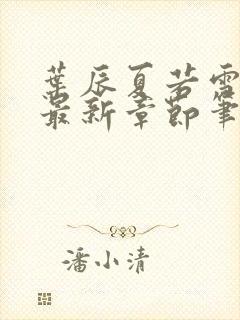 葉辰夏若雪
最新章節筆
潘小清